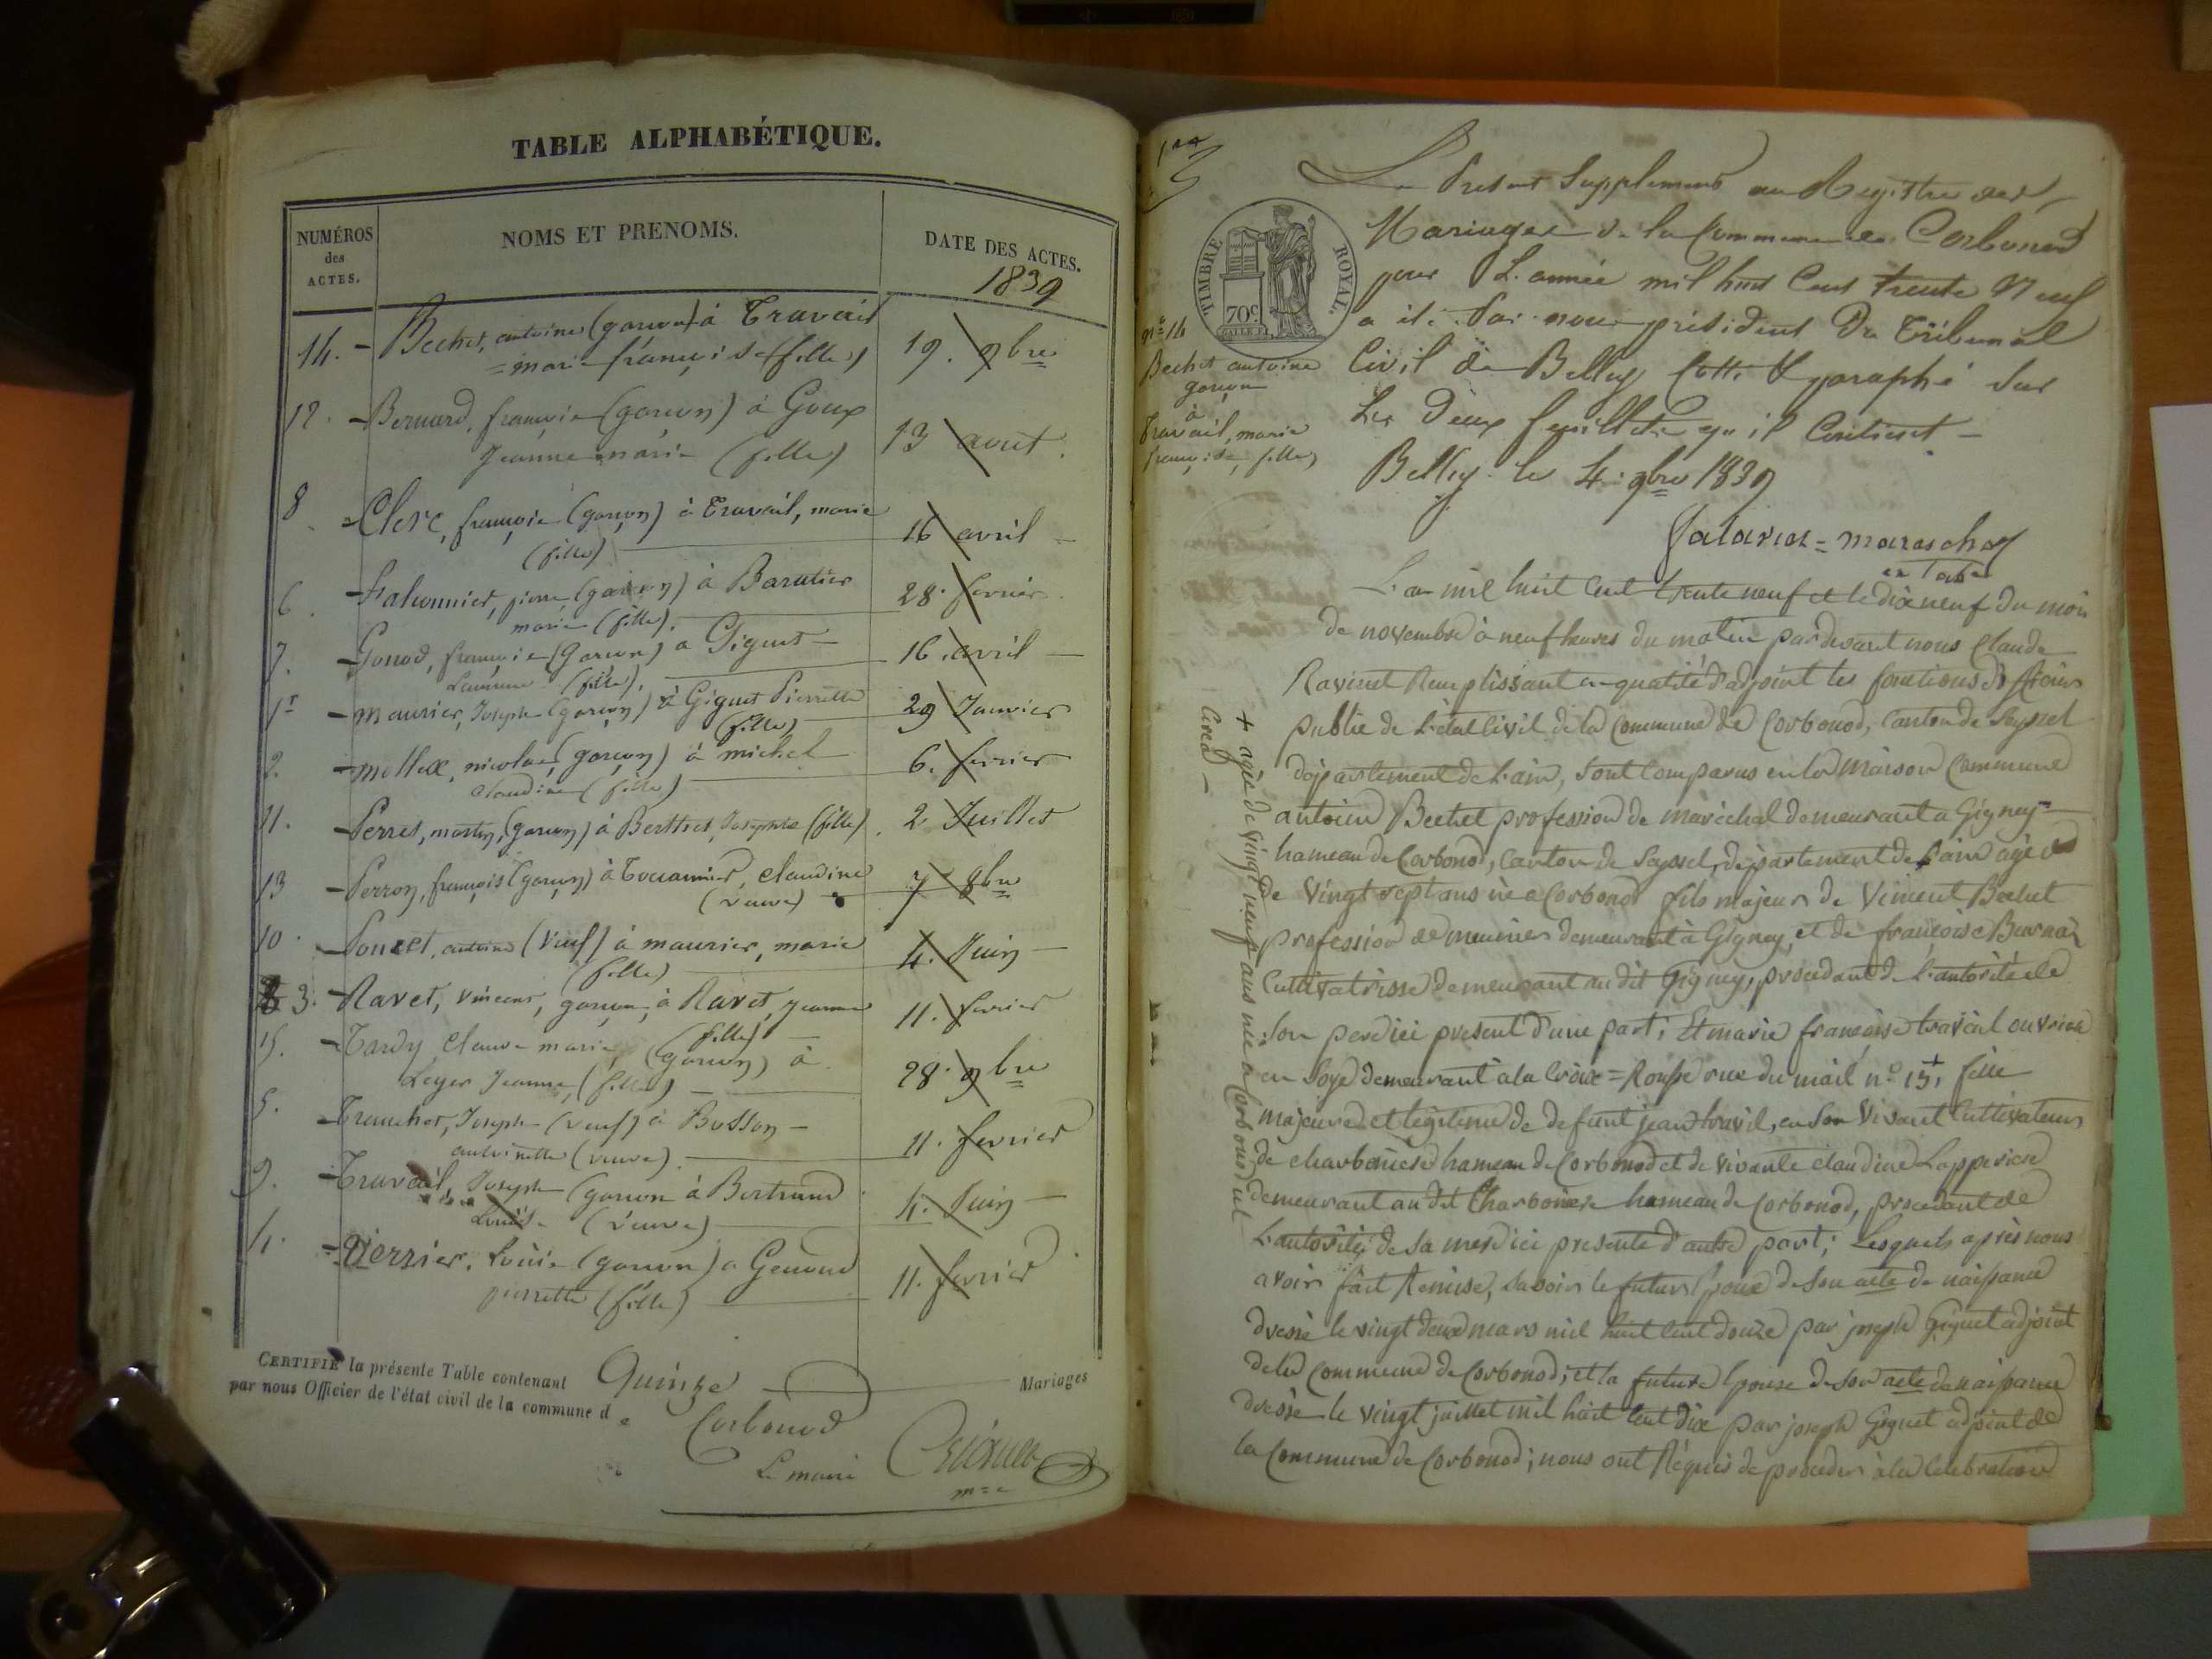 TABLE ALPHABÉTIQUE.
NUMÉROS
des
ACTES.
NOMS ET PRENOMS.
DATE DES ACTES.
1839
14. - Bechet, antoine (garcon) à Travail
= marie françoise (fille) 19. 9bre
12. - Bernard, françois (garcon) à Goux
Jeanne marie (fille) 13 aout.
8 - Clerc, françois (garçon) à Travail, marie
(fille) 16 avril
6. - pierre (garçon) à Baratier
marie (fille). 28. fevrier
7. - Gonod, françois (Garcon) a Giguet
(fille). 16. avril
1r - maurier, Joseph (garçon) à Giguet Pierrette
(fille) 29 Janvier
2. - mollex, nicolas (garçon) à michel
claudine (fille) 6. fevrier
11. - Perret, martin, (garcon) à Berthet, Josephte (fille). 2 Juillet
13 - Perron, françois (garçon) à claudine
(veuve) 7 8bre
10. - Poncet, antoine (Veuf) à maurier, marie
(fille) 4. Juin
3. - Ravet, vincent, garçon, à Ravet, jeanne
(fille) 11. fevrier
15. - Tardy Claude marie, (garçon) à
Leger Jeanne, (fille) 28. 9bre
5. - Tranchet, Joseph (veuf) à Busson
antoinette (veuve). 11. fevrier
9. - Travail, Joseph (garcon à Bertrand
Louise (veuve) 4. Juin
4. - Verrier, Louis (garcon) a Genoud
pierrette (fille) 11. fevrier
CERTIFIÉ la présente Table contenant Quinze Mariages
par nous Officier de l'état civil de la commune de
Corbonod
Le maire
1er
TIMBRE ROYAL.
70c.
no 14
Bechet antoine
garçon
à
Travail, marie
françoise, fille,
Le Present Supplement au Registre des
Mariages de la Commune de Corbonod
pour L'année mil huit Cent trente Neuf
a été Par nous président Du Tribunal
Civil de Belley Cotté & paraphé Sur
Les Deux feuillets qu'il Contient
Belley le 4. 9bre 1839
L'an mil huit Cent trente neuf et le dix neuf du mois
de novembre à neuf heures du matin pardevant nous Claude
Ravinet Remplissant en qualité d'adjoint les fonctions d'officier
public de L'état Civil de la Commune de Corbonod, Canton de Seyssel
département de L'ain, Sont Comparus en la Maison Commune
antoine Bechet profession de maréchal demeurant a Gigney
hameau de Corbonod, Canton de Seyssel, département de L'ain agé
de Vingt sept ans né a Corbonod fils majeur de Vincent Bechet
profession de meunier demeurant à Gigney, et de françoise
Cultivatrisse demeurant au dit Gigney, procedant de L'autorité de
Son pere ici present d'une part; Et marie françoise travail ouvriere
en Soye demeurant a la Croix=Rousse rue du mail no 15, + fille
majeure et legitime de defunt jean travail, en Son Vivant Cultivateur
de charboniere hameau de Corbonod et de vivante claudine Lapperiere
demeurant au dit Charboniere hameau de Corbonod, procedant de
L'autorité de Sa mere ici presente d'autre part; Lesquels après nous
avoir fait Remise, Savoir le futur Epoux de Son acte de naissance
dressé le vingt deux mars mil huit Cent douze par joseph Giguet adjoint
de la Commune de Corbonod; et la future Epouse de Son acte de naissance
dressé le vingt juillet mil huit Cent dix par joseph Giguet adjoint de
la Commune de Corbonod; nous ont Réquis de proceder à la Celebration
+ agée de vingt neuf ans née a Corbonod